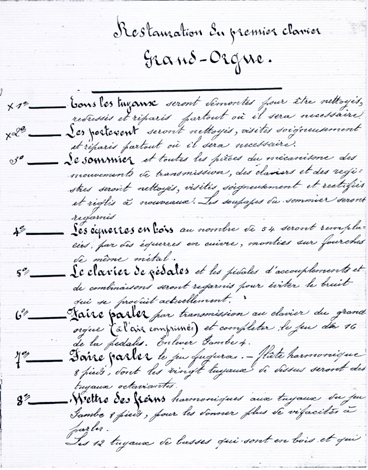 Restauration du premier clavier
Grand-Orgue.
x 1° Tous les tuyaux seront démontés pour être nettoyés,
redressés et réparés partout où il sera nécessaire
x 2° Les portevent seront nettoyés, visités soigneusement
et réparés partout où il sera nécessaire.
3° Le sommier et toutes les pièces du mécanisme des
mouvements de transmission, des claviers et des regis-
tres seront nettoyés, visités, soigneusement et rectifiés
et réglés à nouveaux. Les soupapes du sommier seront
regarnis
4° Les équerres en bois au nombre de 54 seront rempla-
cées, par des équerres en cuivre, montées sur fourches
de même métal.
5° Le clavier de pédales et les pédales d'accouplements et
de combinaisons seront regarnis pour éviter le bruit
qui se produit actuellement.
6° Faire parler par transmission au clavier du grand
orgue (à l'air comprimé) et compléter le jeu de 16
de la pédale. Enlever Gambe 4.
7° Faire parler le jeu – flûte harmonique
8 pieds, dont les vingt tuyaux de dessus seront des
tuyaux octaviants.
8° Mettre des freins harmoniques aux tuyaux du jeu
Gambe 8 pieds, pour les donner plus de vifacités à
parler.
Les 12 tuyaux de basses qui sont en bois et qui